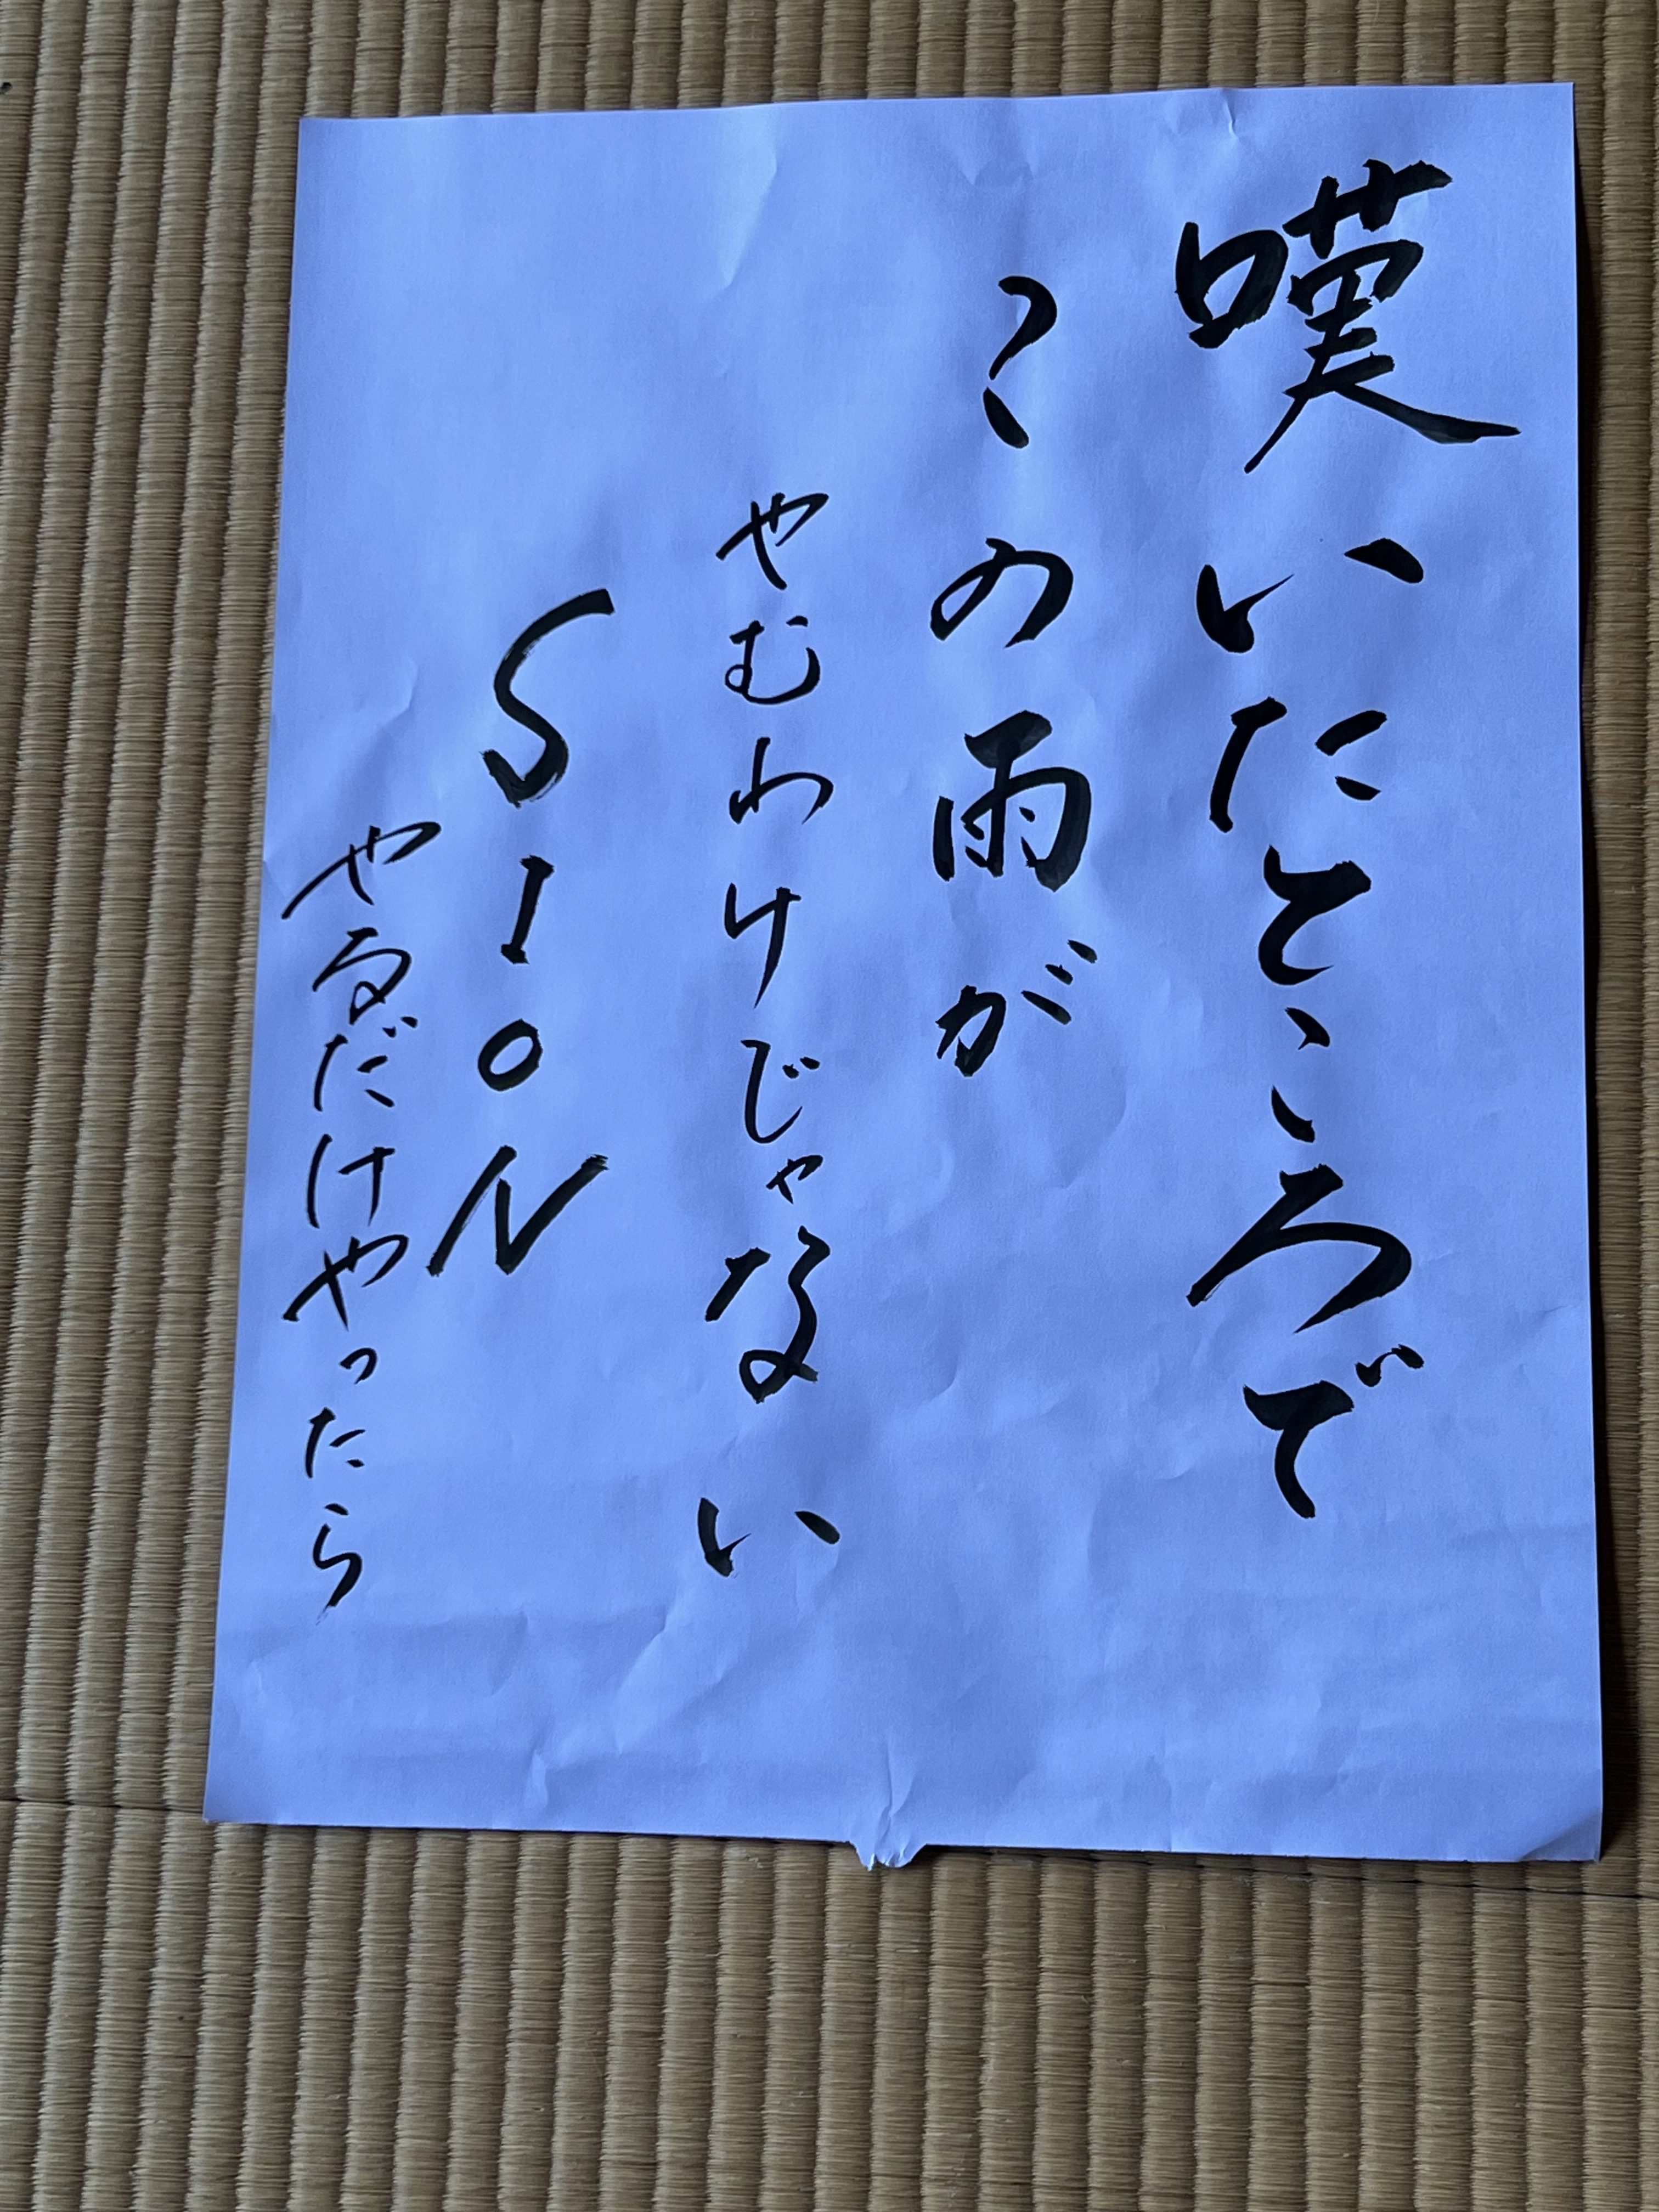 嘆いたところで
この雨が
やむわけじゃない
SION
やるだけやったら